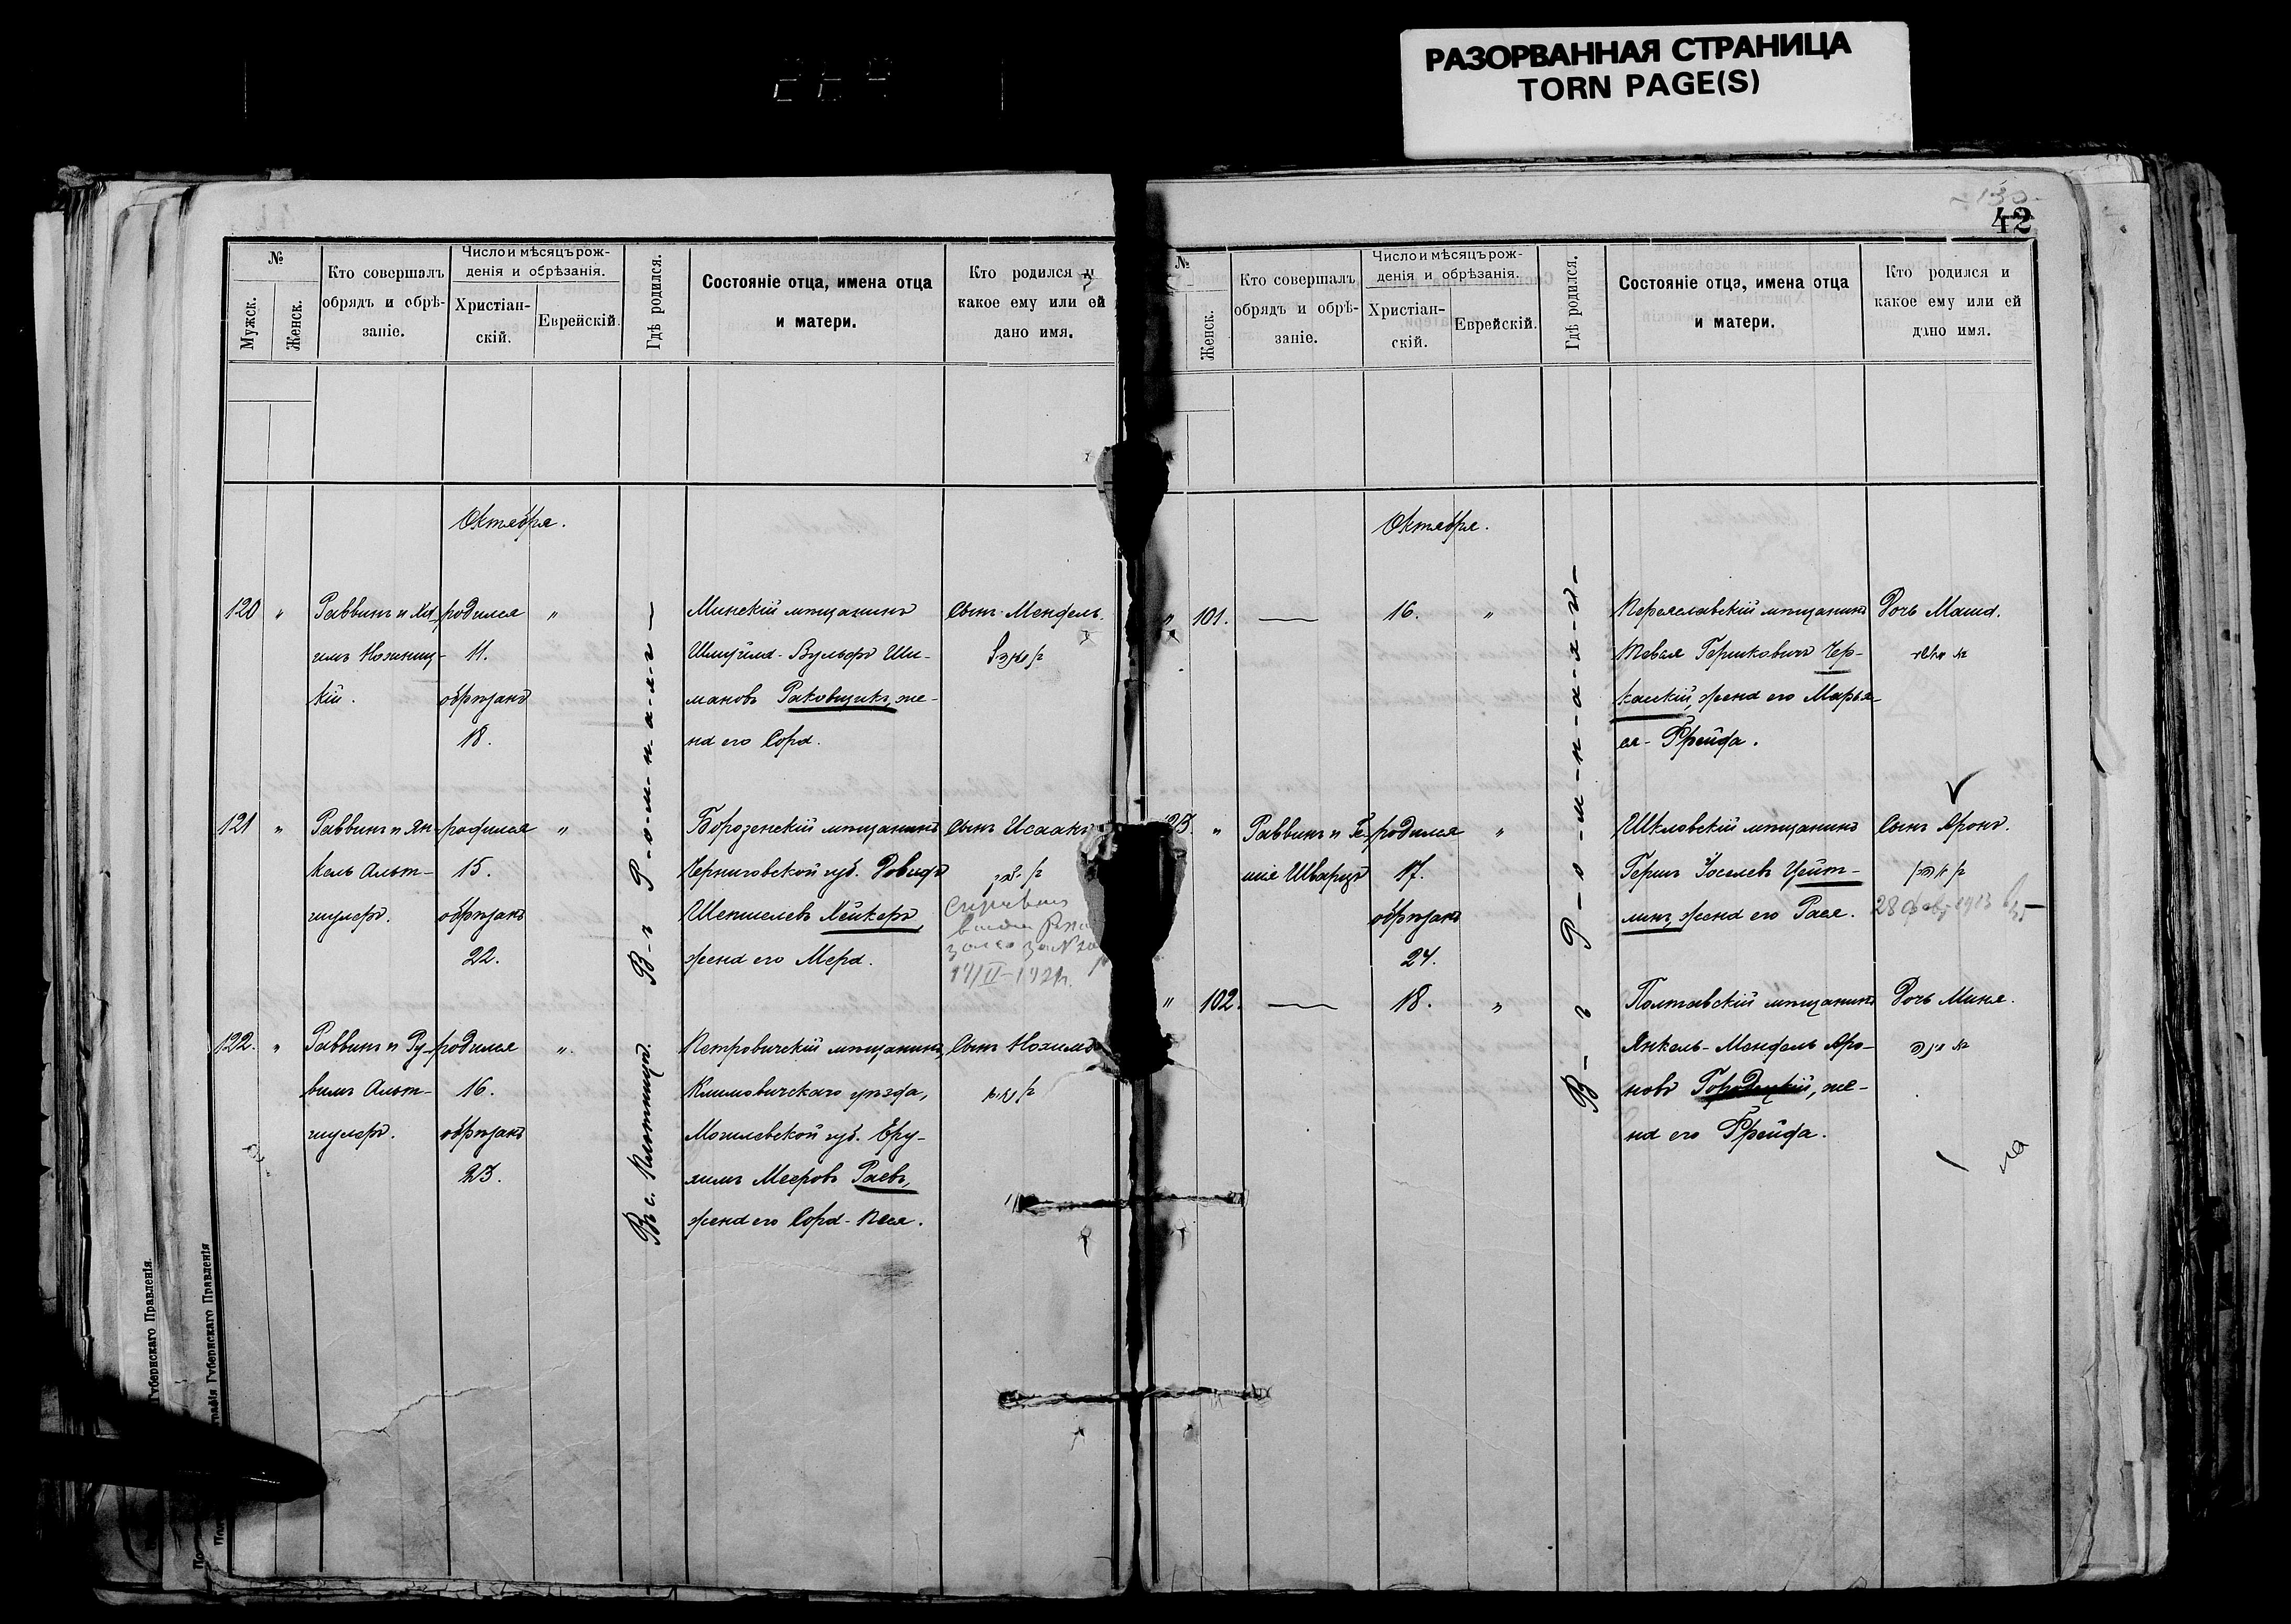 РАЗОРВАННАЯ СТРАНИЦА
TORN PAGE(S)
42
№
Мужск.
Женск.
Кто совершалъ
обрядъ и обрѣ-
заніе.
Число и мѣсяцъ рож-
денія и обрѣзанія.
Христіан-
скій.
Еврейскій.
Гдѣ родился.
Состояніе отца, имена отца
и матери.
Кто родился и
какое ему или ей
дано имя.
Октября.
120 "
Раввинъ и Ха-
имъ Ножниц-
кій.
родился
11.
обрѣзанъ
18.
"
Минскій мѣщанинъ
Шмуйла-Вульфъ Ши-
мановъ Раковщикъ, же-
на его Сора.
Сынъ Мендель.
121 "
Раввинъ и Ян-
кель Альт-
шулеръ.
родился
15.
обрѣзанъ
22.
"
Борзенскій мѣщанинъ
Черниговской губ. Довидъ
Шепшелевъ Хейкеръ,
жена его Мера.
Сынъ Исаакъ
122. "
Раввинъ и Ру-
вимъ Альт-
шулеръ.
родился
16.
обрѣзанъ
23.
"
Петровичскій мѣщанинъ,
Климовичскаго уѣзда,
Могилевской губ. Еру-
химъ Мееровъ Раевъ,
жена его Сора-Песя.
Сынъ Нохимъ
В-ъ Р-о-м-н-а-х-ъ
Въ с. Плотницѣ.
№
Женск.
Кто совершалъ
обрядъ и обрѣ-
заніе.
Число и мѣсяцъ рож-
денія и обрѣзанія.
Христіан-
скій.
Еврейскій.
Гдѣ родился.
Состояніе отца, имена отца
и матери.
Кто родился и
какое ему или ей
дано имя.
Октября.
" 101.
16.
"
Переяславскій мѣщанинъ
Тевья Гершковичъ Чер-
каскій, жена его Марья-
ся-Фрейда.
Дочь Маша.
23. "
Раввинъ и Ге-
шля Шварцъ
родился
17.
обрѣзанъ
24.
"
Шкловскій мѣщанинъ
Гершъ Іоселевъ Цейт-
линъ, жена его Рася.
Сынъ Аронъ.
" 102.
18.
"
Полтавскій мѣщанинъ
Янкель-Мендель Аро-
новъ Городецкій, же-
на его Фрейда.
Дочь Миня.
В-ъ Р-о-м-н-а-х-ъ
Губернскаго Правленія.
Губернскаго Правленія